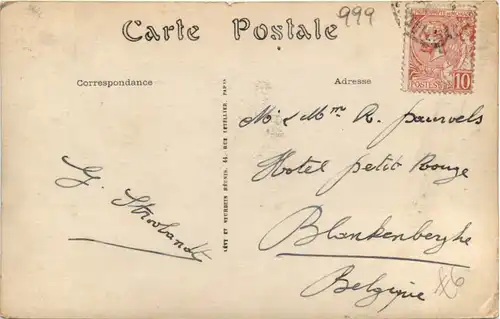 999
Carte Postale
POSTES 10
Correspondance
Adresse
LÉVY ET NEURDEIN RÉUNIS, 44, RUE LETELLIER, PARIS
M. & Mme R. Pauwels
Hotel petit Rouge
Blankenberghe
Belgique
G. Stroobandt